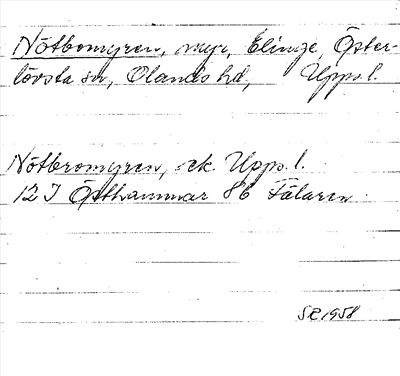 Nötbomyren, myr, Elinge, Öster-
lövsta sn, Olands hd, Upps. l.
Nötbromyren, ek. Upps. l.
12 I Östhammar 8b Fälaren
SR 1958